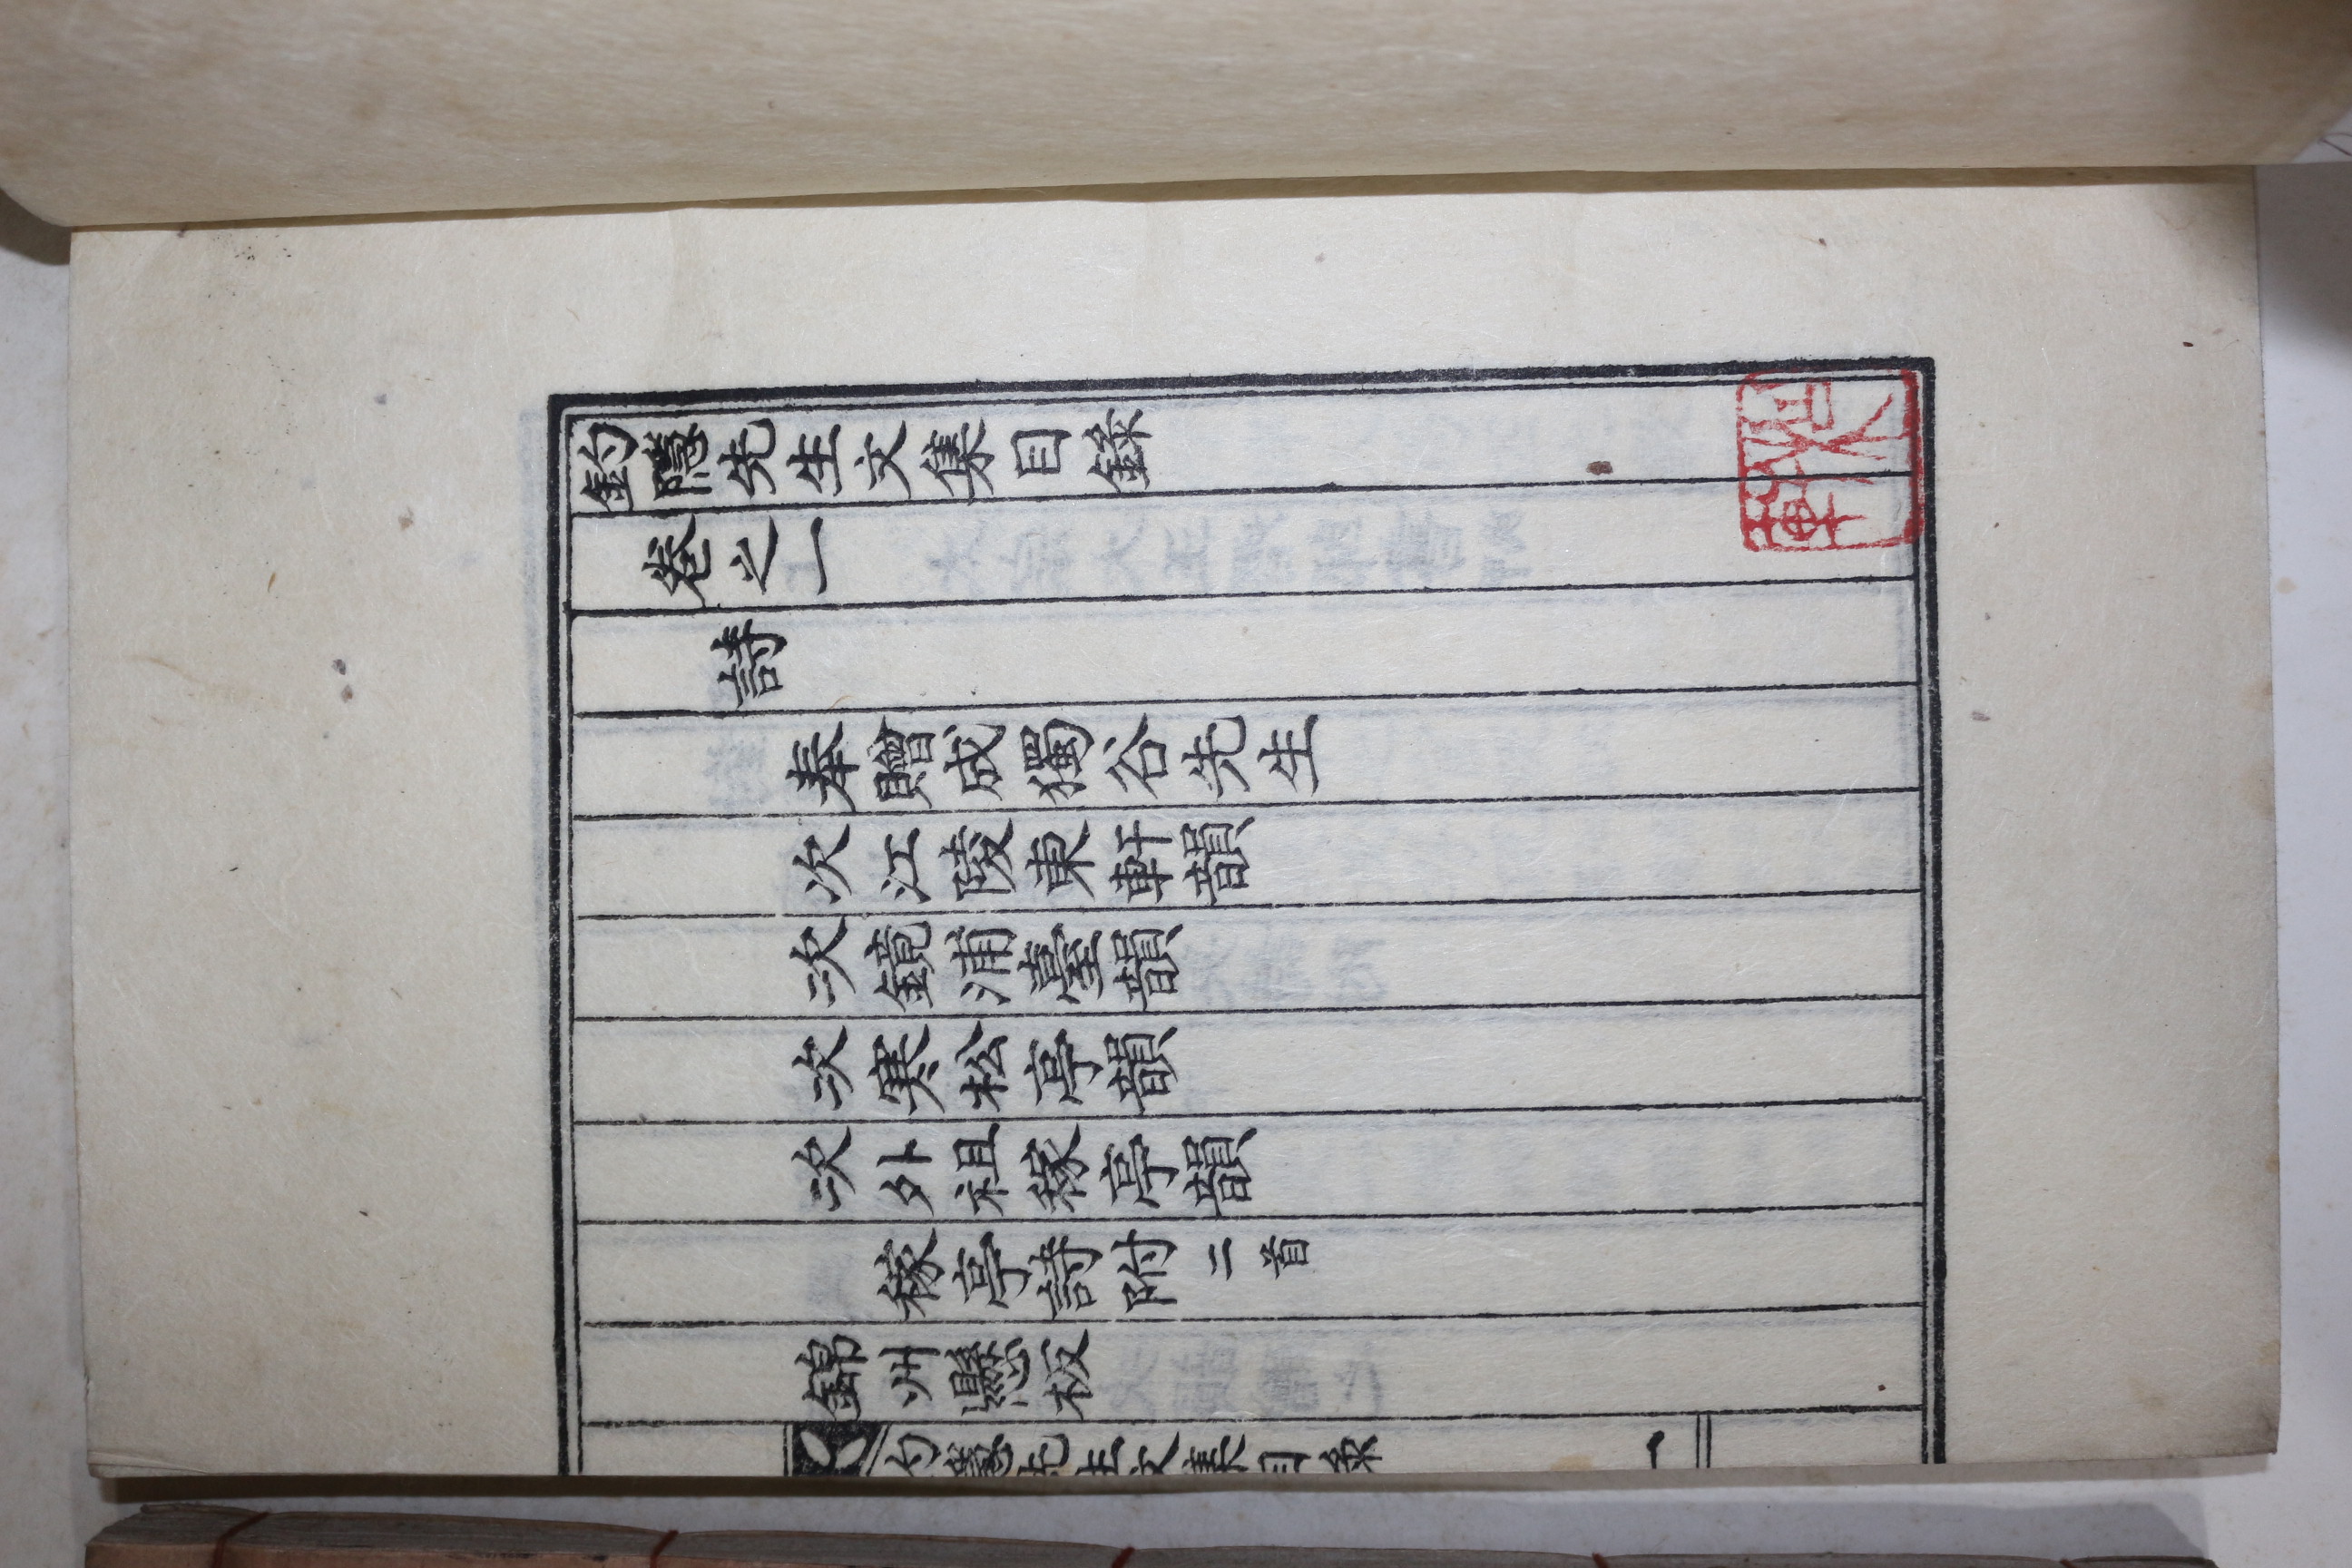 釣隱先生文集目錄
卷之一
詩
奉贈成獨谷先生
次江陵東軒韻
次鏡浦臺韻
次寒松亭韻
次外祖稼亭韻
稼亭詩附二首
錦州懸板
釣隱先生文集目錄 一